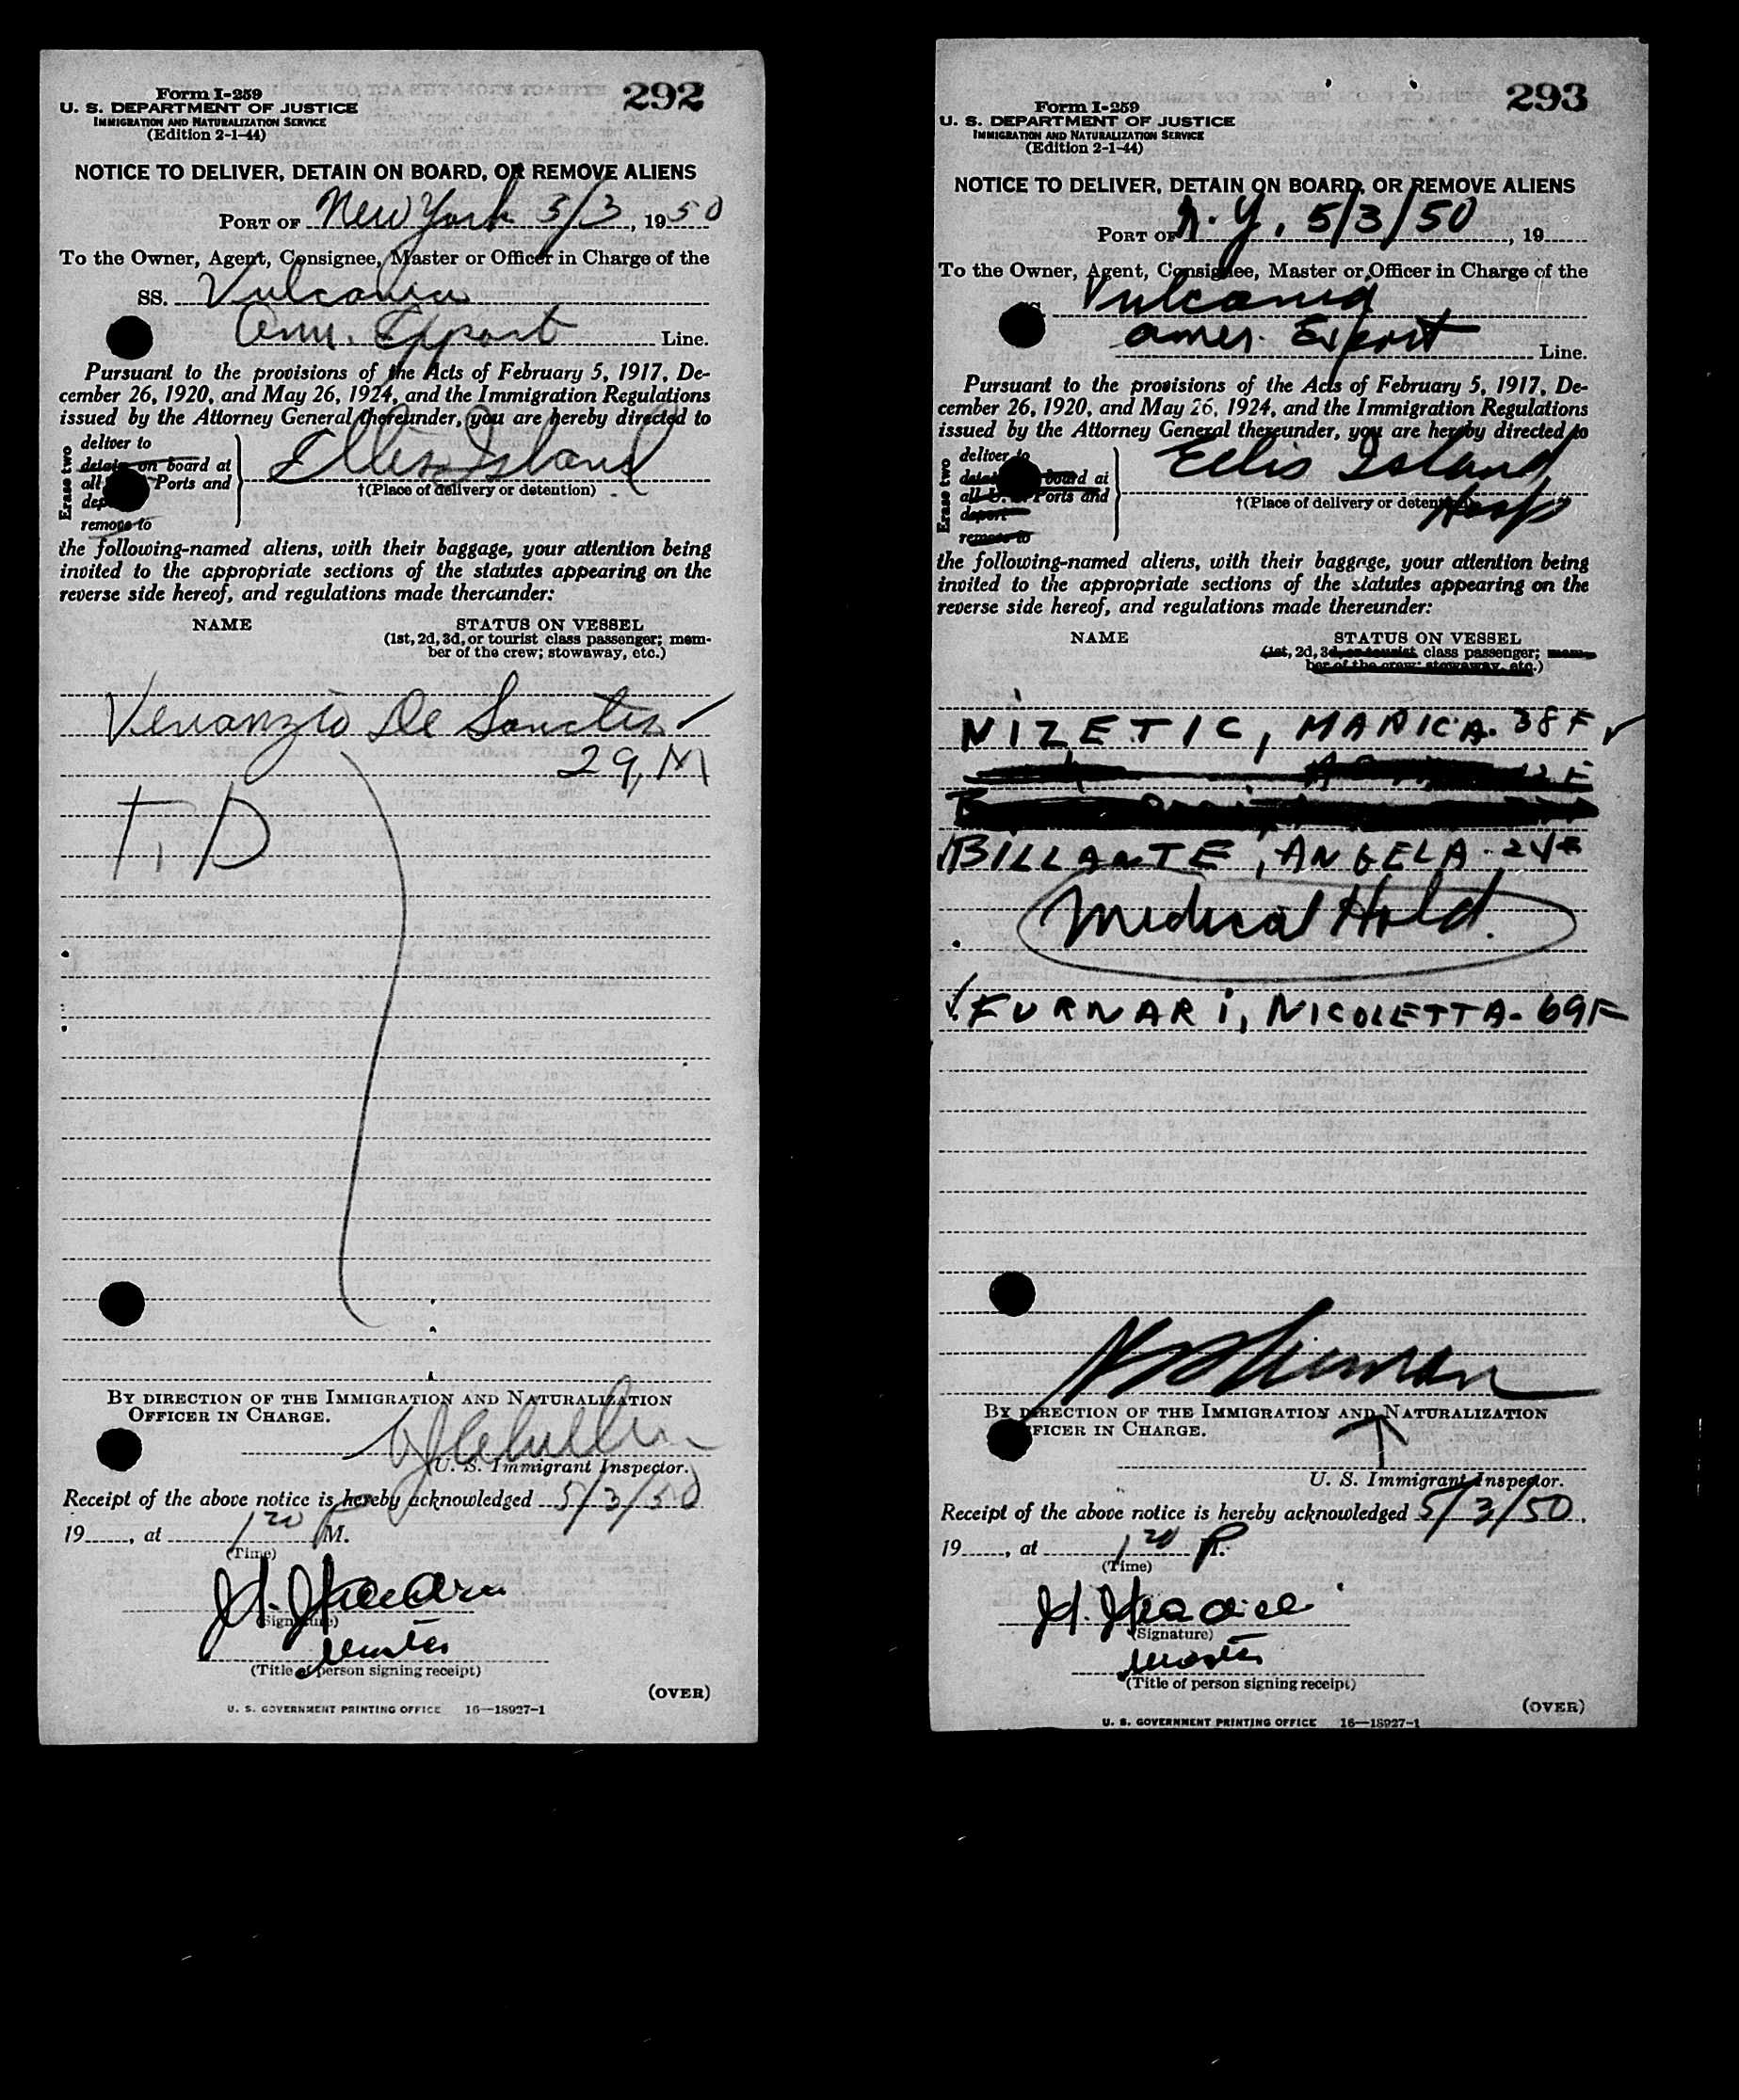 292
Form I-259
U. S. DEPARTMENT OF JUSTICE
IMMIGRATION AND NATURALIZATION SERVICE
(Edition 2-1-44)
NOTICE TO DELIVER, DETAIN ON BOARD, OR REMOVE ALIENS
PORT OF New York 5/3, 1950
To the Owner, Agent, Consignee, Master or Officer in Charge of the
SS. Vulcania
Am. Export Line.
Pursuant to the provisions of the Acts of February 5, 1917, De-
cember 26, 1920, and May 26, 1924, and the Immigration Regulations
issued by the Attorney General thereunder, you are hereby directed to
Erase two
deliver to
detain on board at
all Ports and
remove to
Ellis Island
†(Place of delivery or detention)
the following-named aliens, with their baggage, your attention being
invited to the appropriate sections of the statutes appearing on the
reverse side hereof, and regulations made thereunder:
NAME STATUS ON VESSEL
(1st, 2d, 3d, or tourist class passenger; mem-
ber of the crew; stowaway, etc.)
Venanzio De Sanctis ✓
29, M
T, D
BY DIRECTION OF THE IMMIGRATION AND NATURALIZATION
OFFICER IN CHARGE.
U. S. Immigrant Inspector.
Receipt of the above notice is hereby acknowledged 5/3/50
19......, at 1 20 P M.
(Time)
(Signature)
Master
(Title of person signing receipt)
(OVER)
U. S. GOVERNMENT PRINTING OFFICE 16—18927-1
293
Form I-259
U. S. DEPARTMENT OF JUSTICE
IMMIGRATION AND NATURALIZATION SERVICE
(Edition 2-1-44)
NOTICE TO DELIVER, DETAIN ON BOARD, OR REMOVE ALIENS
PORT OF N.Y. 5/3/50, 19......
To the Owner, Agent, Consignee, Master or Officer in Charge of the
Vulcania
Amer. Export Line.
Pursuant to the provisions of the Acts of February 5, 1917, De-
cember 26, 1920, and May 26, 1924, and the Immigration Regulations
issued by the Attorney General thereunder, you are hereby directed to
Erase two
deliver to
board at
Ports and
deport
remove to
Ellis Island
Hosp
†(Place of delivery or detention)
the following-named aliens, with their baggage, your attention being
invited to the appropriate sections of the statutes appearing on the
reverse side hereof, and regulations made thereunder:
NAME STATUS ON VESSEL
(1st, 2d, 3d, or tourist class passenger; mem-
ber of the crew; stowaway, etc.)
NIZETIC, MARICA. 38 F ✓
BILLANTE, ANGELA. 24 F
Medical Hold.
✓ FURNARI, NICOLETTA - 69 F
BY DIRECTION OF THE IMMIGRATION AND NATURALIZATION
OFFICER IN CHARGE.
U. S. Immigrant Inspector.
Receipt of the above notice is hereby acknowledged 5/3/50.
19......, at 1 20 P M.
(Time)
(Signature)
Master
(Title of person signing receipt)
(OVER)
U. S. GOVERNMENT PRINTING OFFICE 16—18927-1